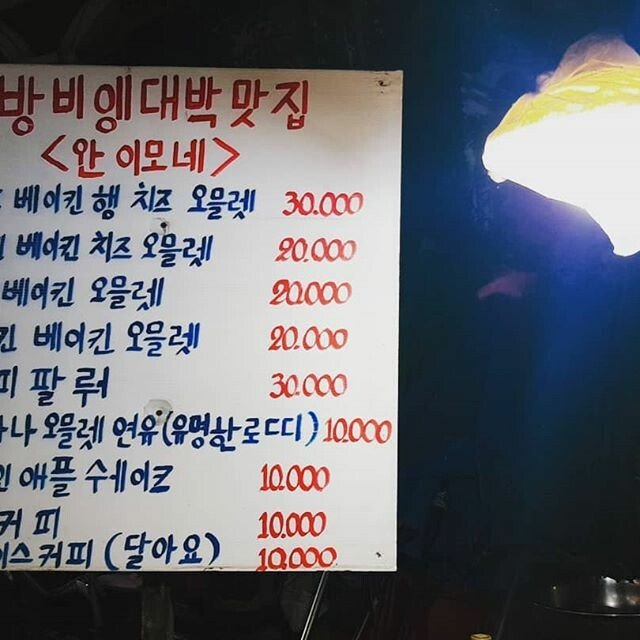 방비엥대박맛집
<안 이모네>
베이킨 행 치즈 오믈렛 30.000
베이킨 치즈 오믈렛 20.000
베이킨 오믈렛 20.000
킨 베이킨 오믈렛 20.000
피 팔 뤄 30.000
나나 오믈렛 연유(유명한로띠) 10.000
인 애플 수에이크 10.000
커피 10.000
이스커피 (달아요) 10.000